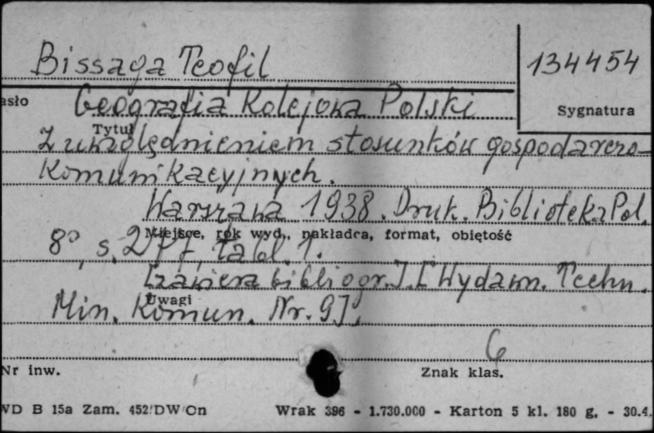 Bissaga Teofil
134454
asło
Sygnatura
Geografia Kolejowa Polski
Tytuł
z uwzględnieniem stosunków gospodarczo-
Komunikacyjnych.
Warszawa 1938. Druk. Biblioteka Pol.
Miejsce, rok wyd., nakładca, format, objętość
8°, s. 277, tabl. 1.
[zawiera bibliogr.]. [Wydawn. Techn.
Uwagi
Min. Komun. Nr. 9].
6
Nr inw.
Znak klas.
WD B 15a Zam. 452/DW/On
Wrak 396 - 1.730.000 - Karton 5 kl. 180 g. - 30.4.